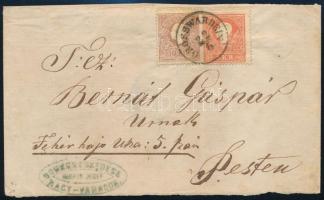 GROSSWARDEIN
22
T: cz:
Bernát Gáspár
Urnak
Fehér hajó Utza: 5. szám
Pesten
NAGY-VÁRADON